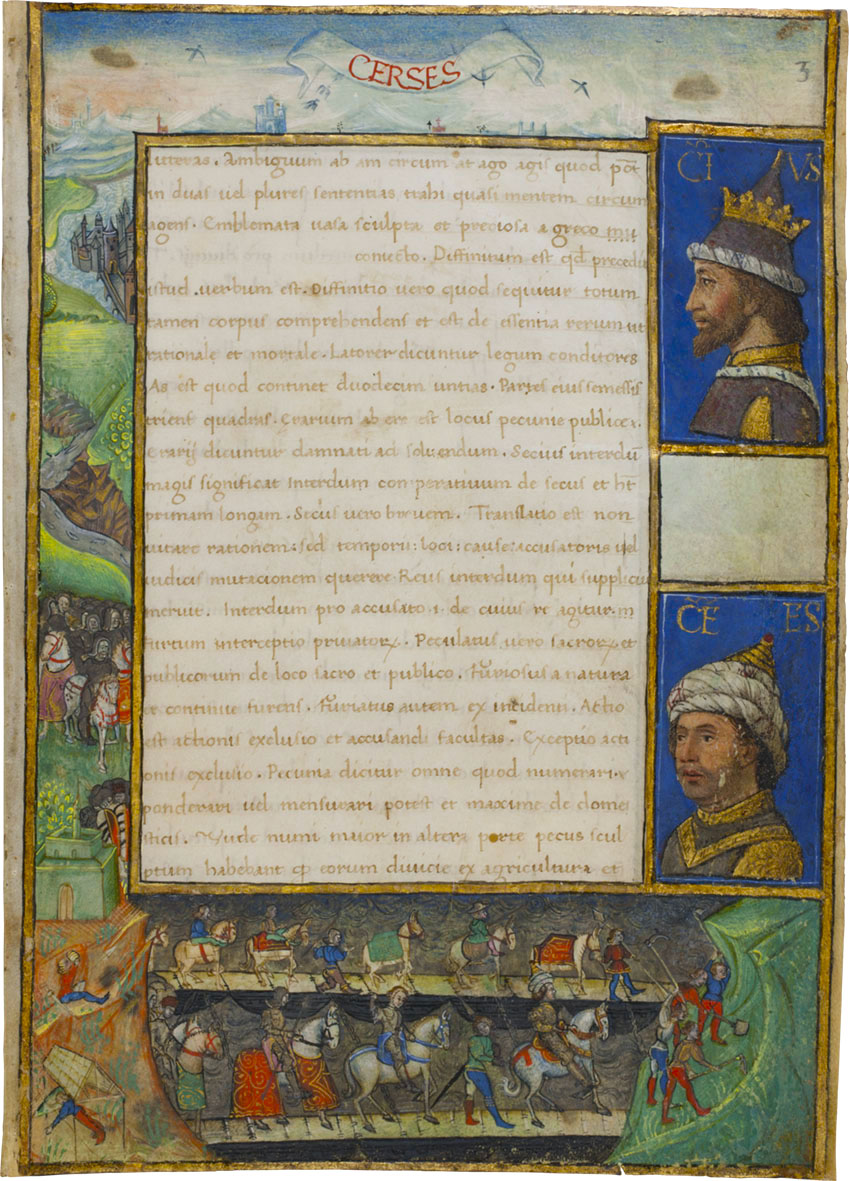 CERSES
3
luteras. Ambiguum ab am circum at ago agis quod pōt
in duas uel plures sententias trahi quasi mentem circum
agens. Emblemata uasa sculpta et preciosa a greco
conuecto. Diffinitum est qd precedit
istud .uerbum est. Diffinitio uero quod sequitur totum
tamen corpus comprehendens et est de essentia rerum ut
rationale et mortale. Latorer dicuntur legum conditores
As est quod continet duodecim untias. Partes eius semessis
trient quadras. Erarium ab ere est locus pecunie publice.
Erarij dicuntur damnati ad soluendum. Secius interdū
magis significat Interdum conperatiuum de secus et h̄t
primam longam. Secus uero breuem. Translatio est non
uitare rationem: sed temporis: loci: cause: accusatoris uel
iudicis mutacionem querere. Reus interdum qui suppliciū
meruit. Interdum pro accusato .i. de cuius re agitur.
furtum interceptio priuatoꝝ. Peculatus uero sacroꝝ et
publicorum de loco sacro et publico. Furiosus a natura
et continue furens. Furiatus autem ex incidenti. Actio
est actionis exclusio et accusandi facultas. Exceptio acti
onis exclusio. Pecunia dicitur omne quod numerari.
ponderari uel mensurari potest et maxime de dome
sticis. Vnde numi maior in altera porte pecus scul
ptum habebant ꝙ eorum diuicie ex agricultura et
C̄I VS
C̄E ES